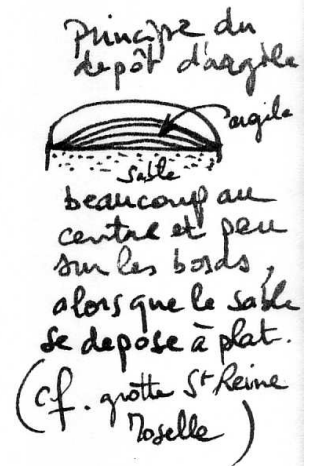 Principe du
depôt d'argile
argile
sable
beaucoup au
centre et peu
sur les bords,
alors que le sable
se depose à plat.
(cf. grotte St Reine
Moselle)